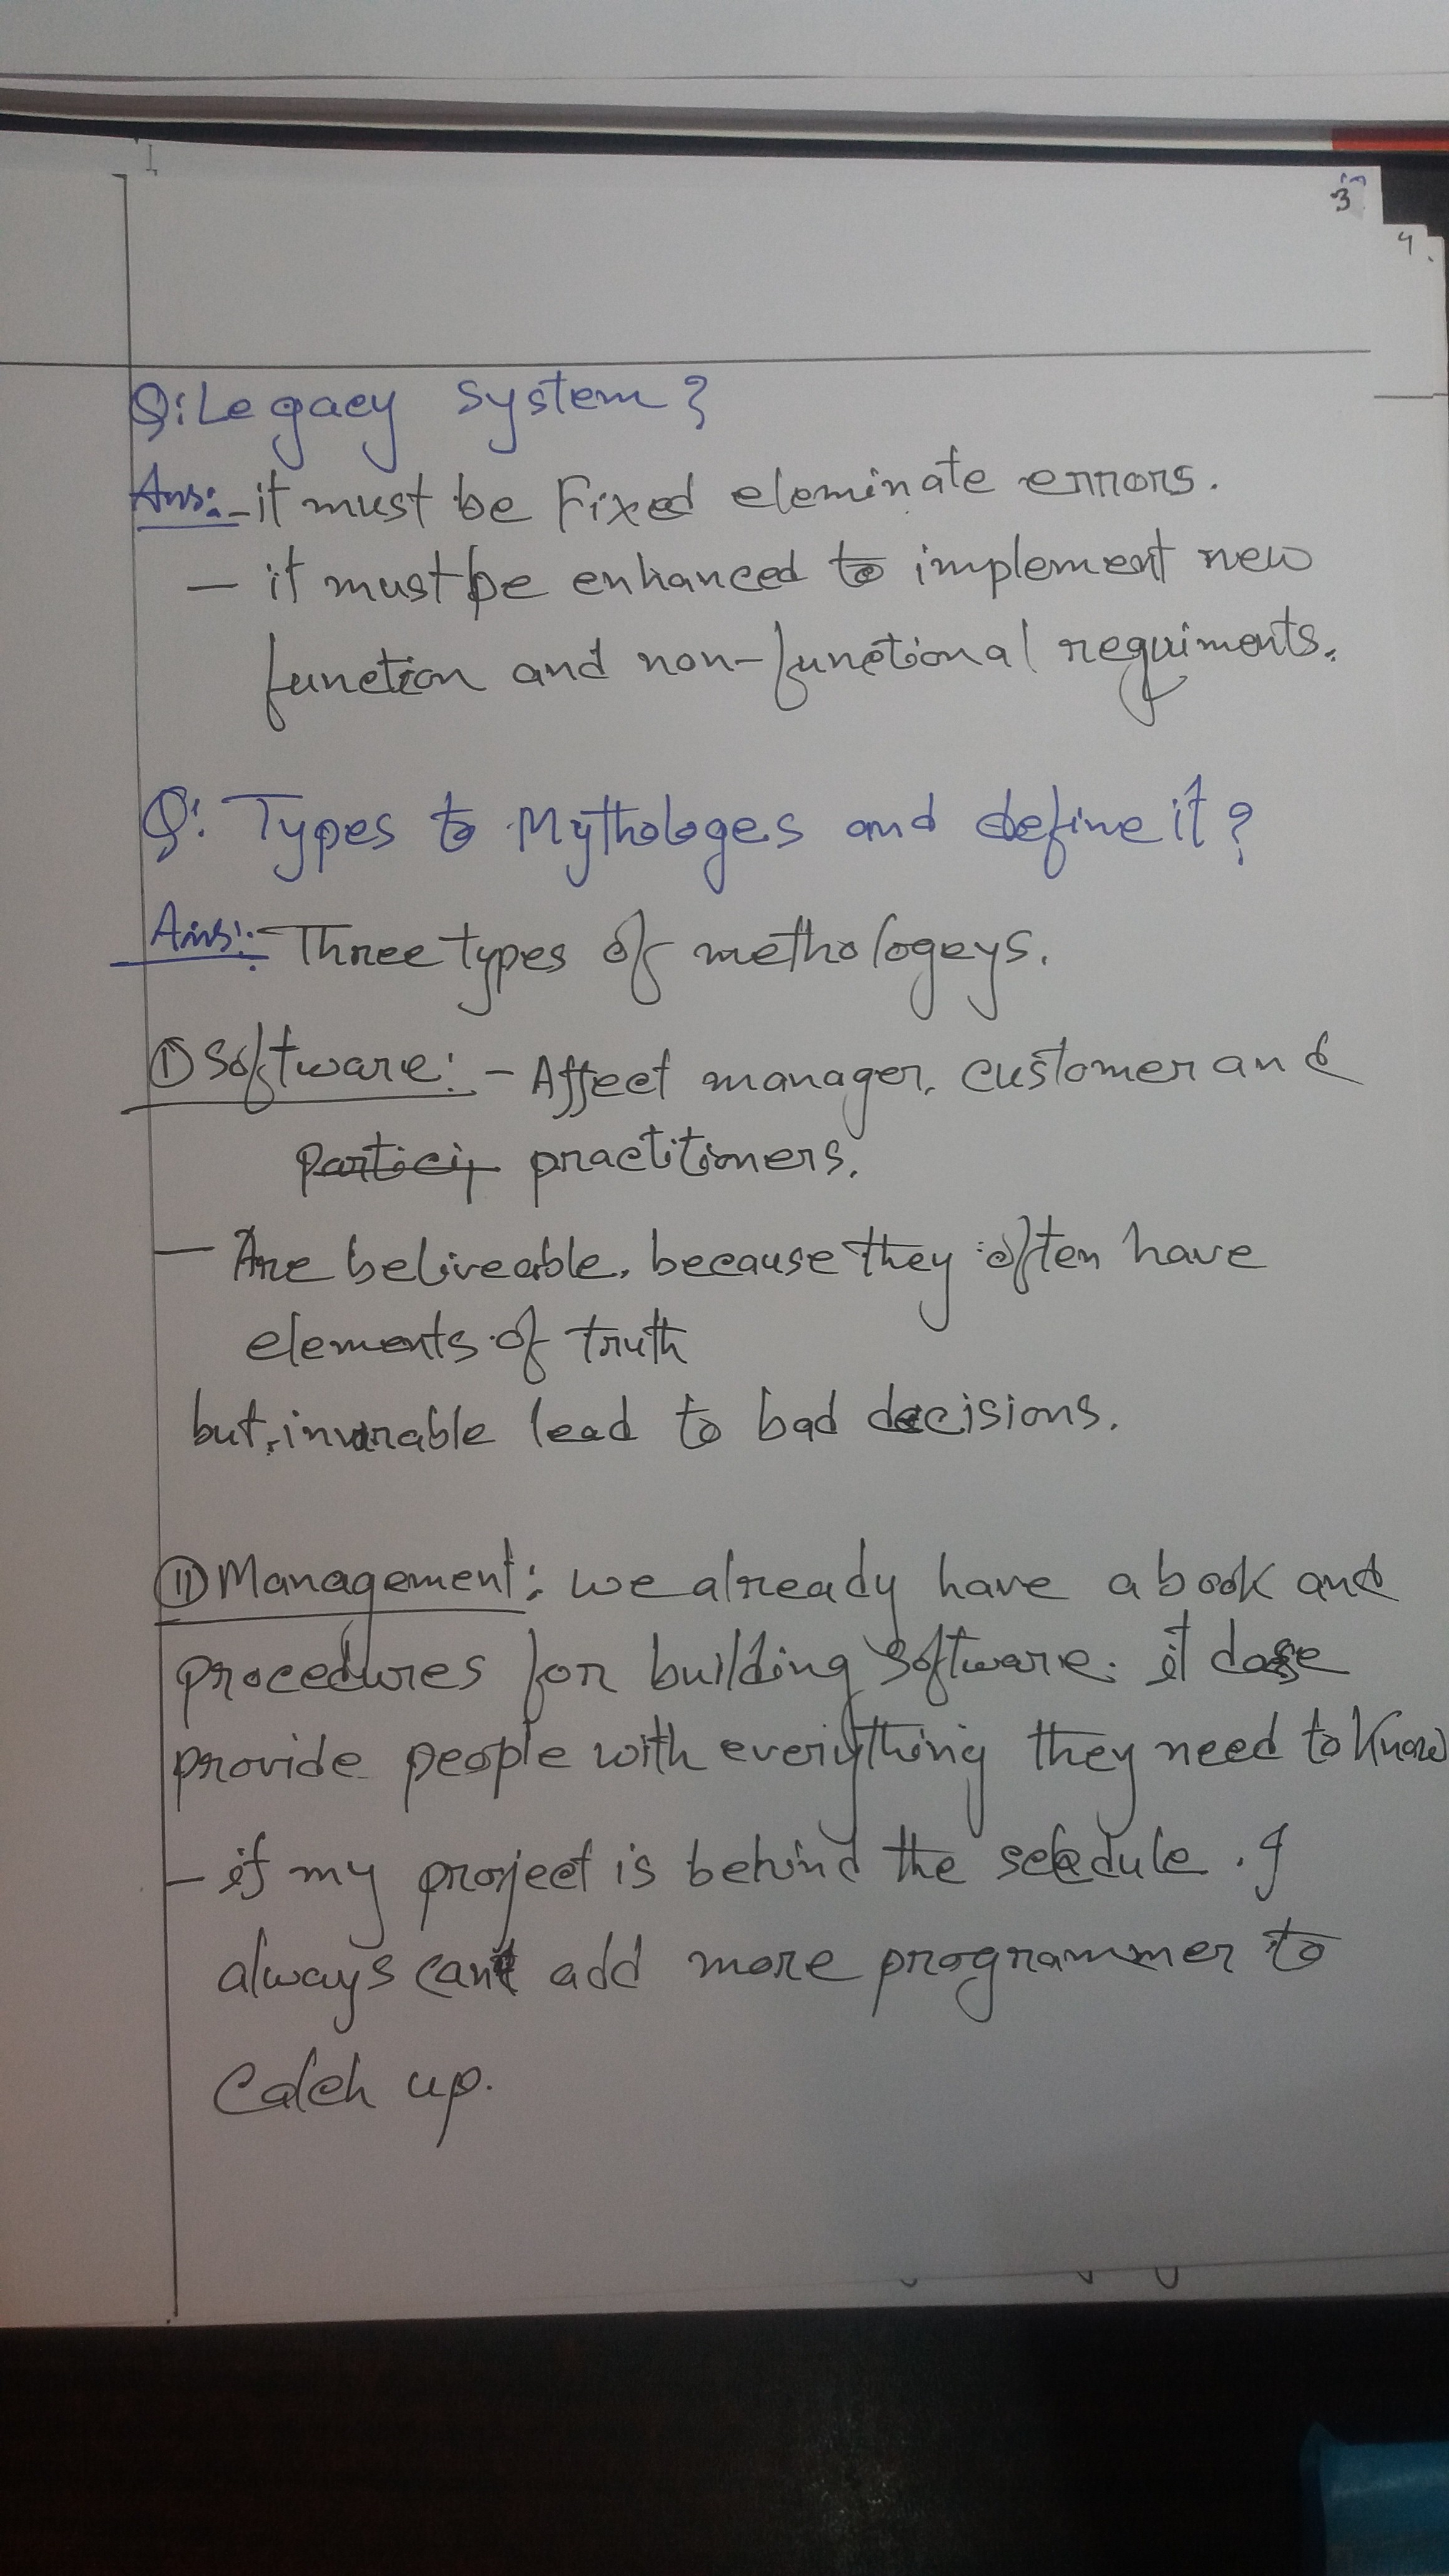 3
4.
Q: Legacy system?
Ans:- it must be Fixed eleminate errors.
— it must be enhanced to implement new
function and non-functional requiments.
Q: Types to Mythologes and define it?
Ans:- Three types of methologeys.
① Software: - Affect manager, customer and
practitioners.
— Are beliveable, because they often have
elements of truth
but, invarable lead to bad decisions.
⑪ Management: we already have a book and
procedures for building software. it
provide people with everything they need to know
- if my project is behind the . I
always add more programmer to
Catch up.